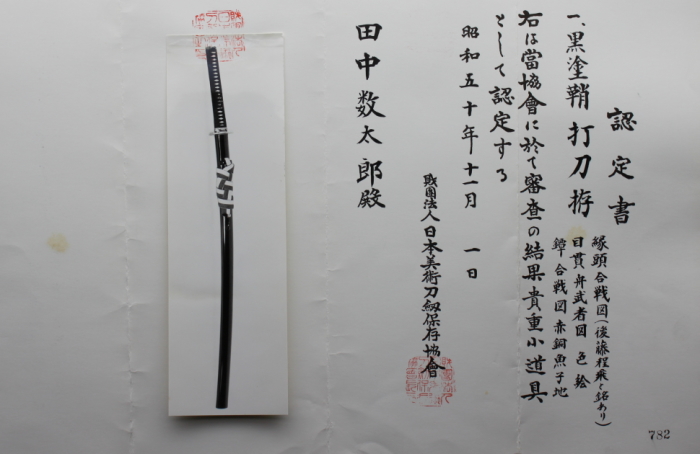 認定書
一、黒塗鞘打刀拵
縁頭合戦図(後藤程乗と銘あり)
目貫舟武者図 色絵
鐔合戦図赤銅魚子地
右は當協會に於て審査の結果貴重小道具
として認定する
昭和五十年十一月 一日
財團法人日本美術刀劔保存協會
田中数太郎殿
782